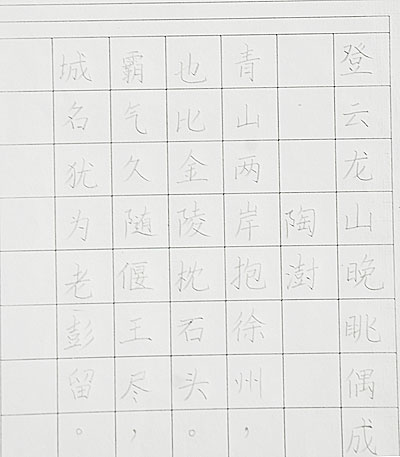 登云龙山晚眺偶成
陶澍
青山两岸抱徐州，
也比金陵枕石头。
霸气久随偃王尽，
城名犹为老彭留。